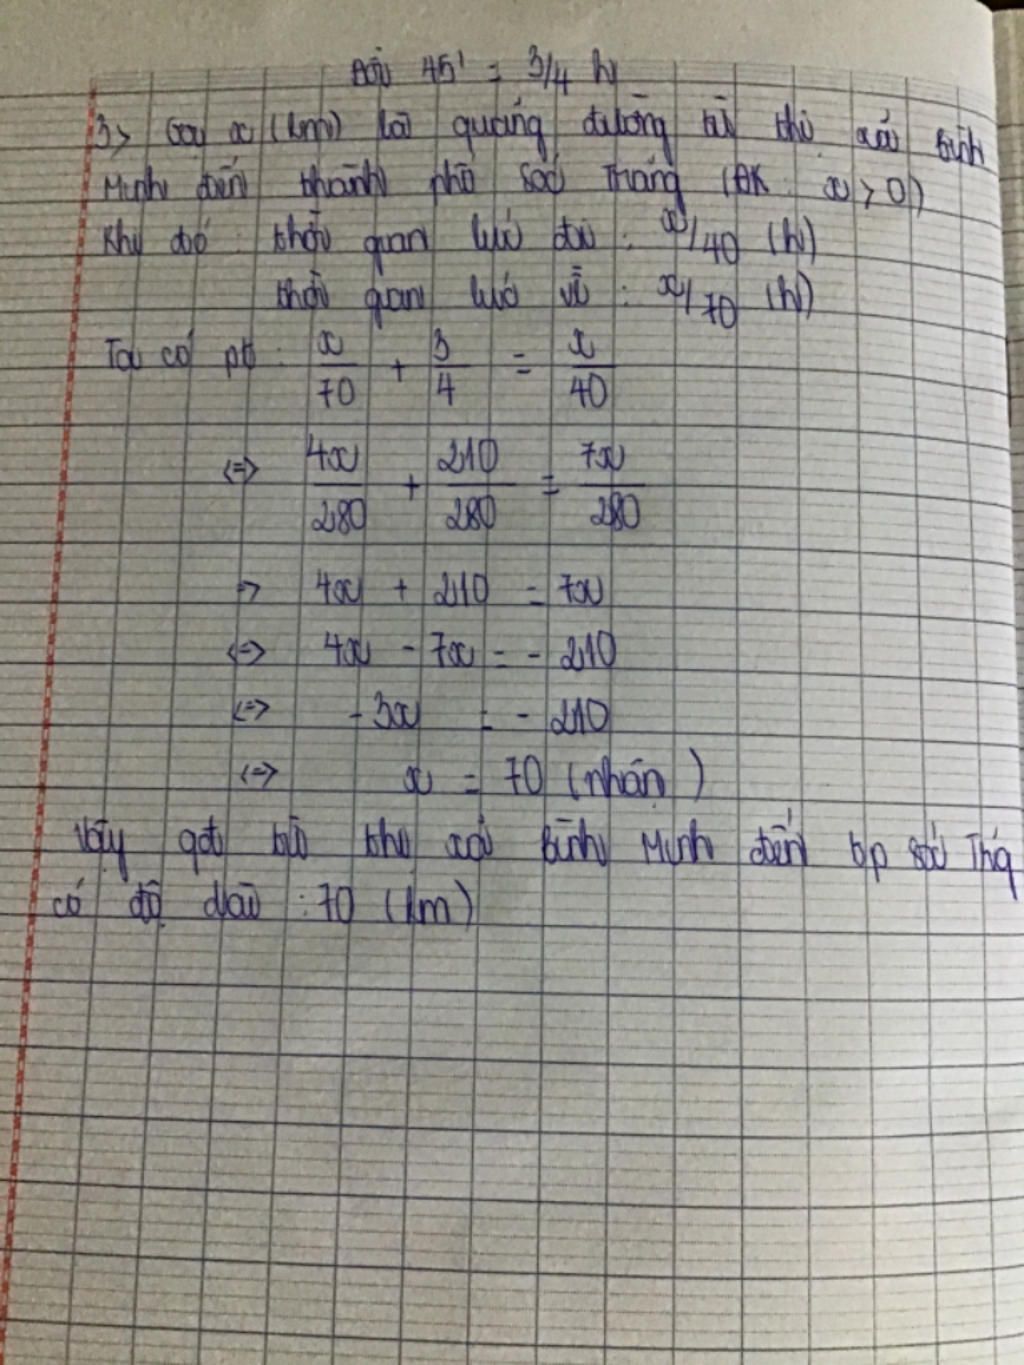 Đổi 45' = 3/4 h
3> Gọi x (km) là quãng đường từ thị xã Bình
Minh đến thành phố Sóc Trăng (ĐK: x > 0)
Khi đó: thời gian lúc đi: x/40 (h)
thời gian lúc về: x/70 (h)
Ta có pt: x/70 + 3/4 = x/40
<=> 4x/280 + 210/280 = 7x/280
=> 4x + 210 = 7x
<=> 4x - 7x = - 210
<=> -3x = - 210
<=> x = 70 (nhận)
Vậy qđ từ thị xã Bình Minh đến tp Sóc Trăng
có độ dài: 70 (km)